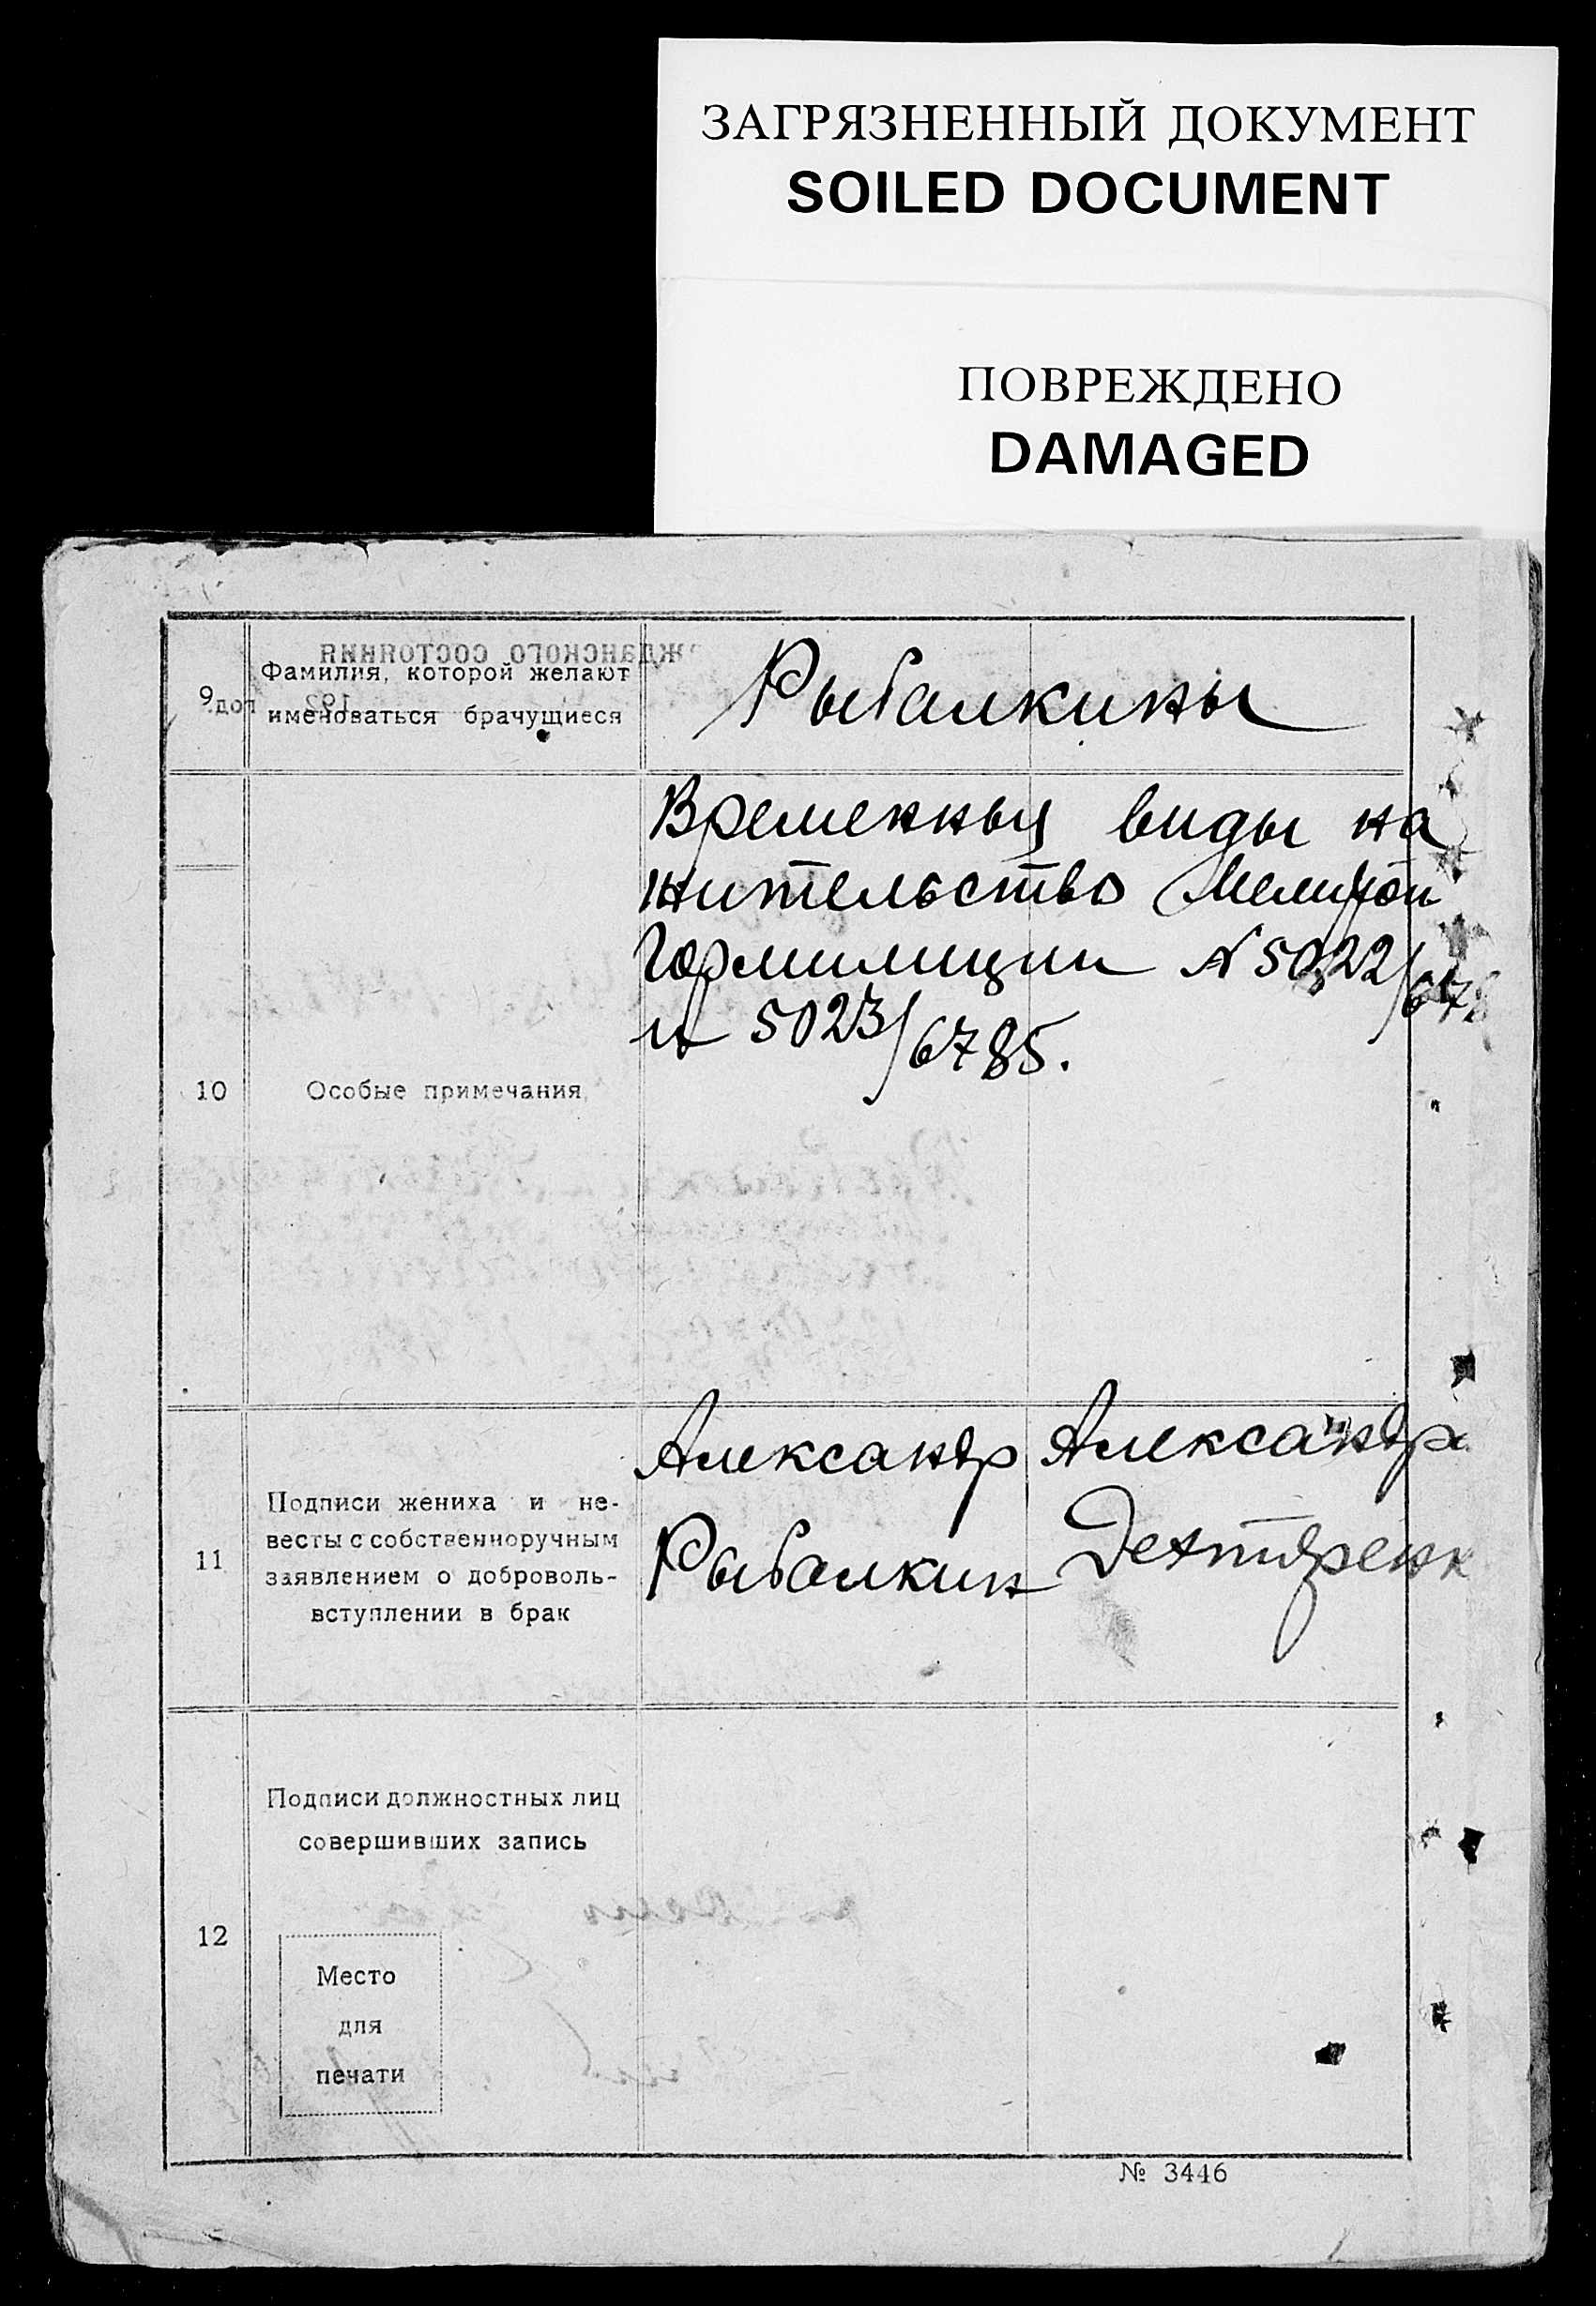 ЗАГРЯЗНЕННЫЙ ДОКУМЕНТ
SOILED DOCUMENT
ПОВРЕЖДЕНО
DAMAGED
9
Фамилия, которой желают
именоваться брачущиеся
Рыбалкины
10
Особые примечания
Временные виды на
жительство Мелитоп
Гормилиции № 5022/678
и 5023/6785.
11
Подписи жениха и не-
весты с собственноручным
заявлением о доброволь-
вступлении в брак
Александр
Рыбалкин
Александра
Дехтяренк
12
Подписи должностных лиц
совершивших запись
Место
для
печати
№ 3446